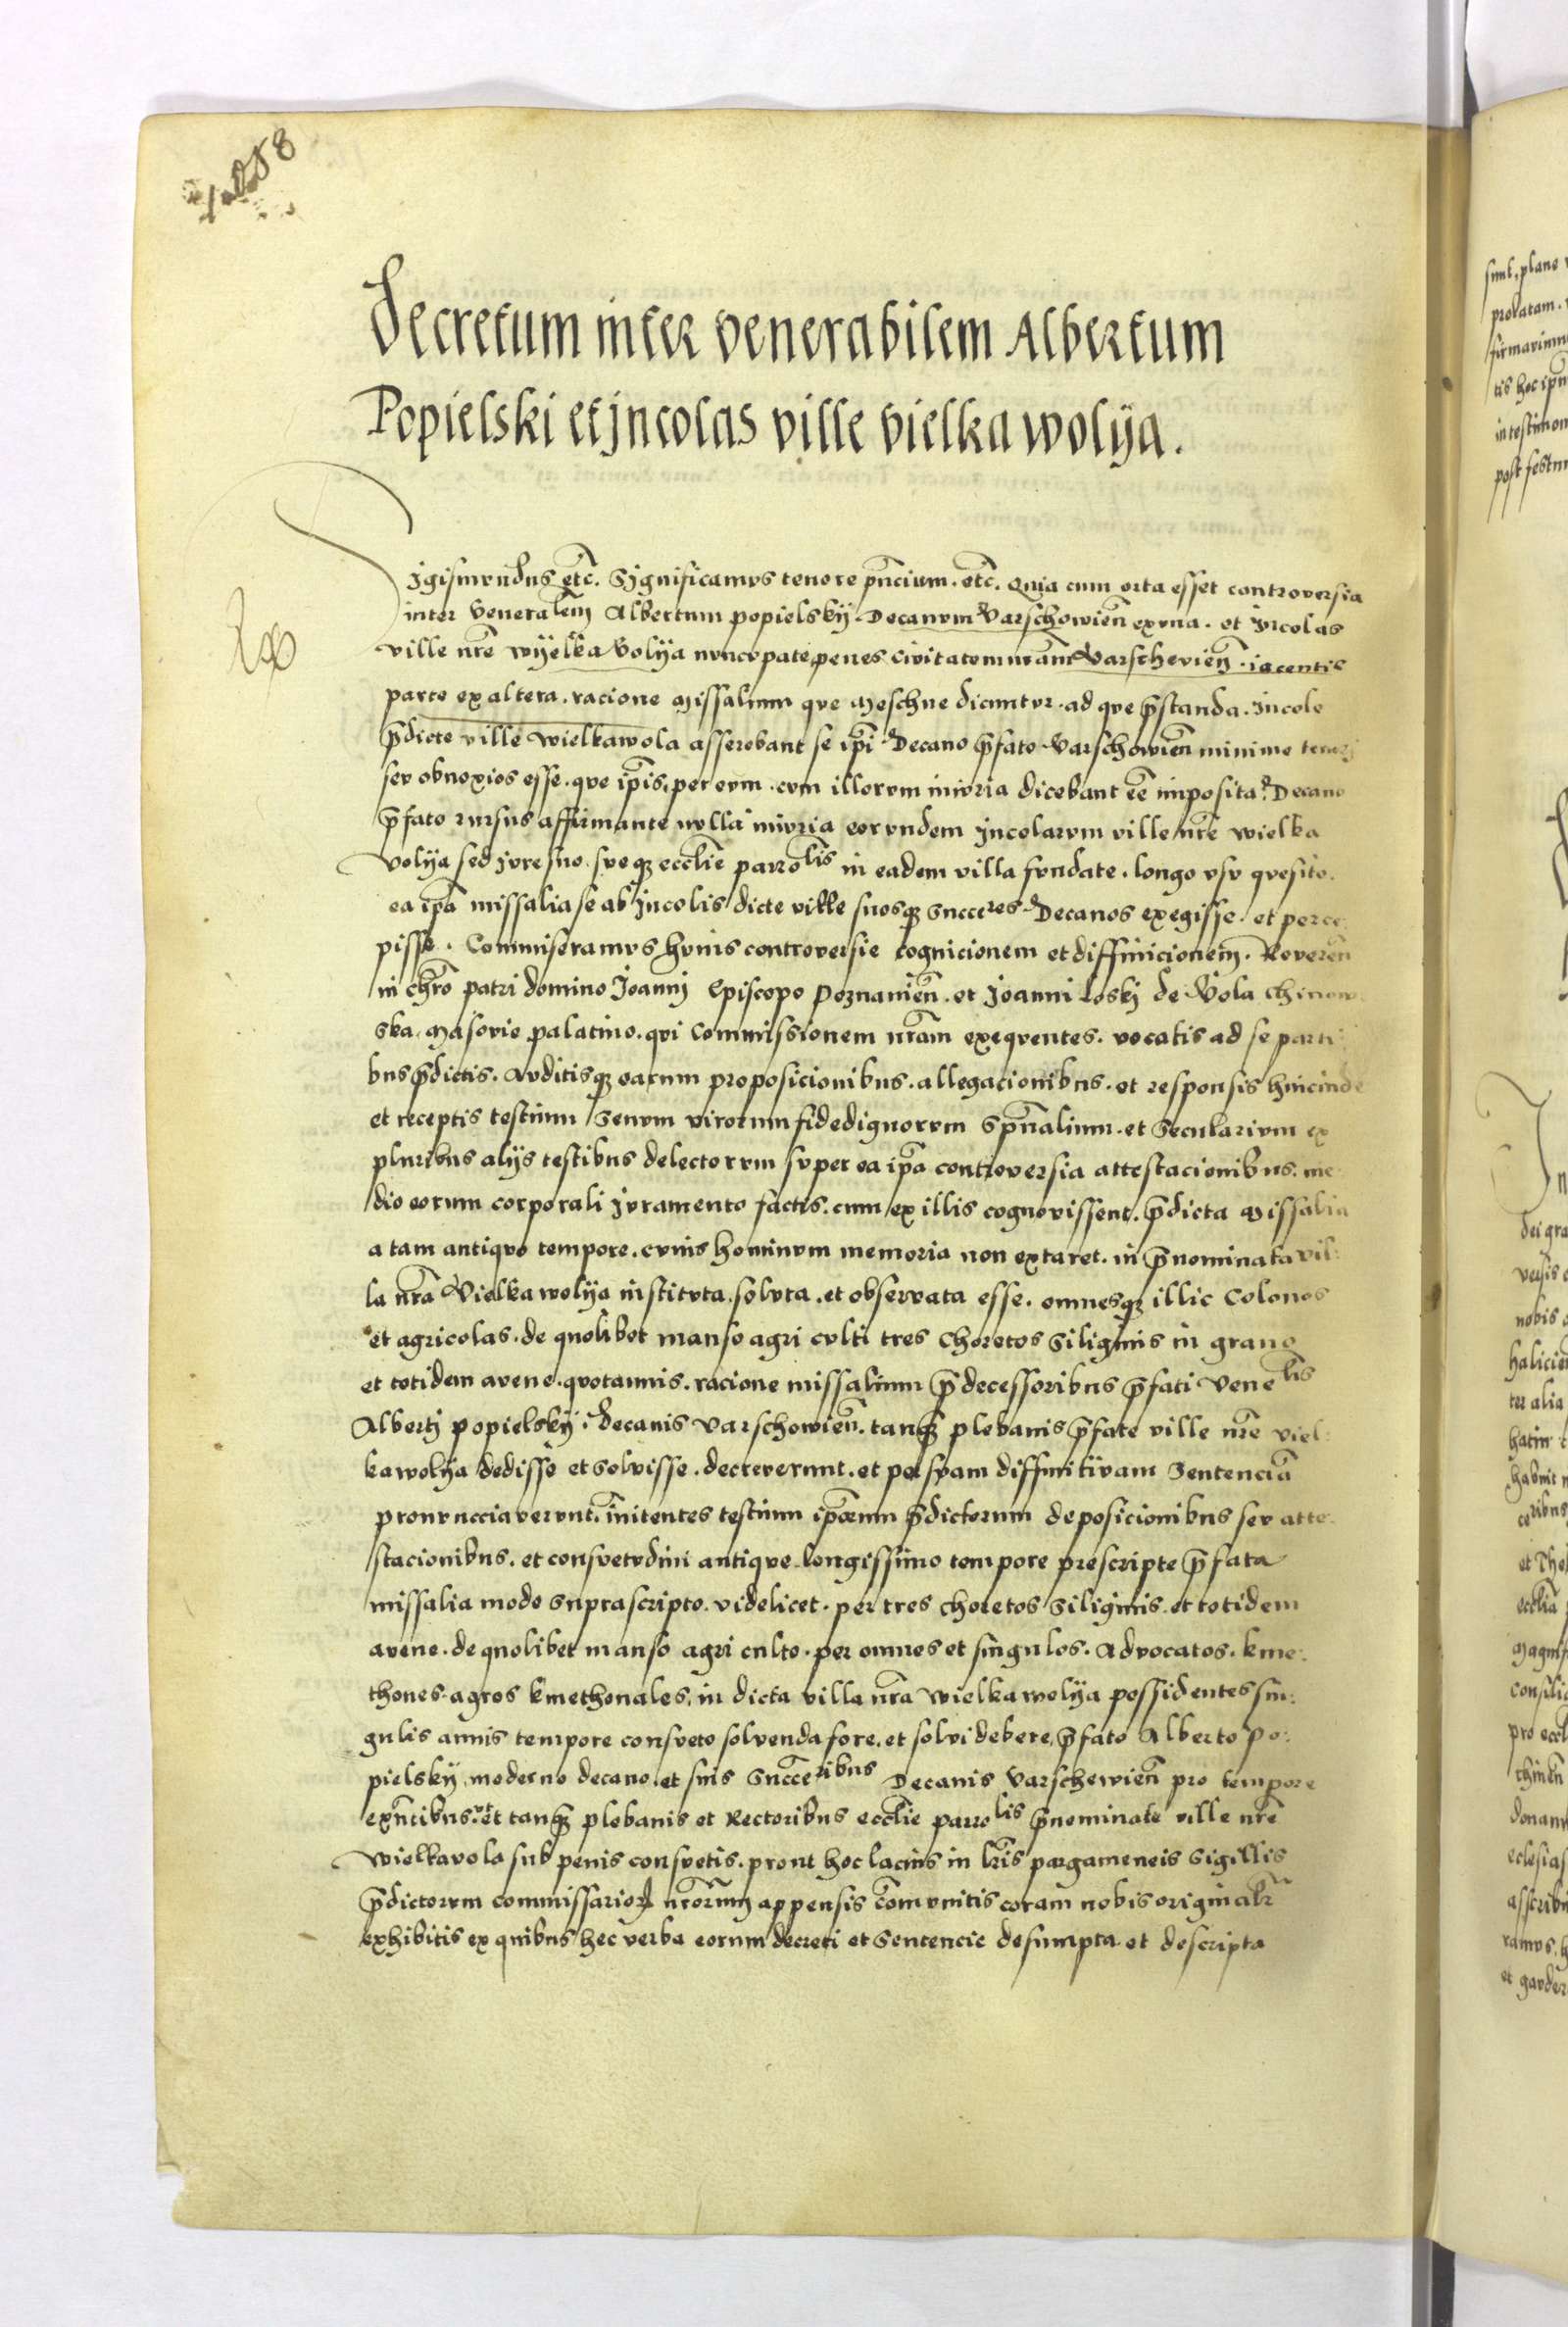 Decretum inter venerabilem Albertum
Popielski et Jncolas ville vielka wolÿa.
Sigismundus etc̄. Significamvs tenore pn̄cium. etc̄. Quia cum orta esset controversia
inter venerabilem Albertum popielskÿ. Decanvm Varschowien̄ ex vna. et Jncolas
ville nr̄e wÿelka volÿa nvncvpate, penes civitatem nr̄am Varschevien̄. iacentis
parte ex altera. racione Missalium qve Meschne dicuntvr. ad qve p̄standa. Jncole
p̄dicte ville wielkawola asserebant se ip̄i Decano p̄fato Varschowien̄ minime teneri
sev obnoxios esse. qve ip̄is, per evm. cvm illorvm inivria dicebant ēe imposita. Decano
p̄fato rursus affirmante nvlla inivria eorvndem Jncolarvm ville nr̄e wielka
volÿa sed jvre suo. sveqꝫ eccl̄ie parrolis in eadem villa fvndate. longo vsv qvesito.
ea ip̄a missalia se ab Jncolis dicte ville suosqꝫ succc̄res Decanos exegisse. et perce
pisse. Commiseramvs hvius controversie cognicionem et diffinicionem. Reveren̄
in chr̄o patri domino Joannj Episcopo Poznanien̄. et Joanni Loskj de Vola Chinow
ska, Masovie palatino. qvi Commissionem nr̄am exeqventes. vocatis ad se parti
bus p̄dictis. Avditisqꝫ earum proposicionibus. allegacionibus. et responsis hincinde
et receptis testium Senvm virorum fidedignorvm Spūalium. et Secularivm ex
pluribus alÿs testibus delectorvm svper ea ip̄a controversia attestacionibus. me
dio eorum corporali jvramento factis. cum ex illis cognovissent. p̄dicta Missalia
a tam antiqvo tempore. cvius hominvm memoria non extaret. in p̄nominata vil:
la nr̄a Vielka wolÿa institvta. solvta. et observata esse. omnesqꝫ illic Colonos
et agricolas. de quolibet manso agri cvlti tres Choretos Siliginis in grano
et totidem avene. qvotannis. racione missalium p̄decessoribus p̄fati Venelis
Albertj popielskÿ. decanis Varschowien̄. tanqꝫ plebanis p̄fate ville nr̄e viel:
kawolÿa dedisse et Solvisse. decreverunt. et per svam diffinitivam Sentenciā
pronvncciavervnt. īnitentes testium ip̄orum p̄dictorum deposicionibus sev atte:
stacionibus. et consvetvdini antiqve longissimo tempore prescripte p̄fata
missalia modo suprascripto. videlicet. per tres choretos Siliginis. et totidem
avene. de quolibet manso agri culto. per omnes et singulos. Advocatos. kme:
thones. agros kmethonales, in dicta villa nr̄a wielkawolÿa possidentes sin:
gulis annis tempore consveto solvenda fore. et solvi debere, p̄fato Alberto Po:
pielskÿ, moderno decano. et suis succc̄eribus Decanis Varschewien̄ pro tempore
exn̄tibus. et tanqꝫ plebanis et Rectoribus eccl̄ie parrolis p̄nominate ville nr̄e
wielkavola sub penis consvetis. prout hec lacius in lr̄is pargameneis Sigillis
p̄dictorvm commissarioꝝ nr̄orum appensis com̄vnitis coram nobis originalr̄
exhibitis ex quibus hec verba eorum decreti et Sentencie desumpta et descripta